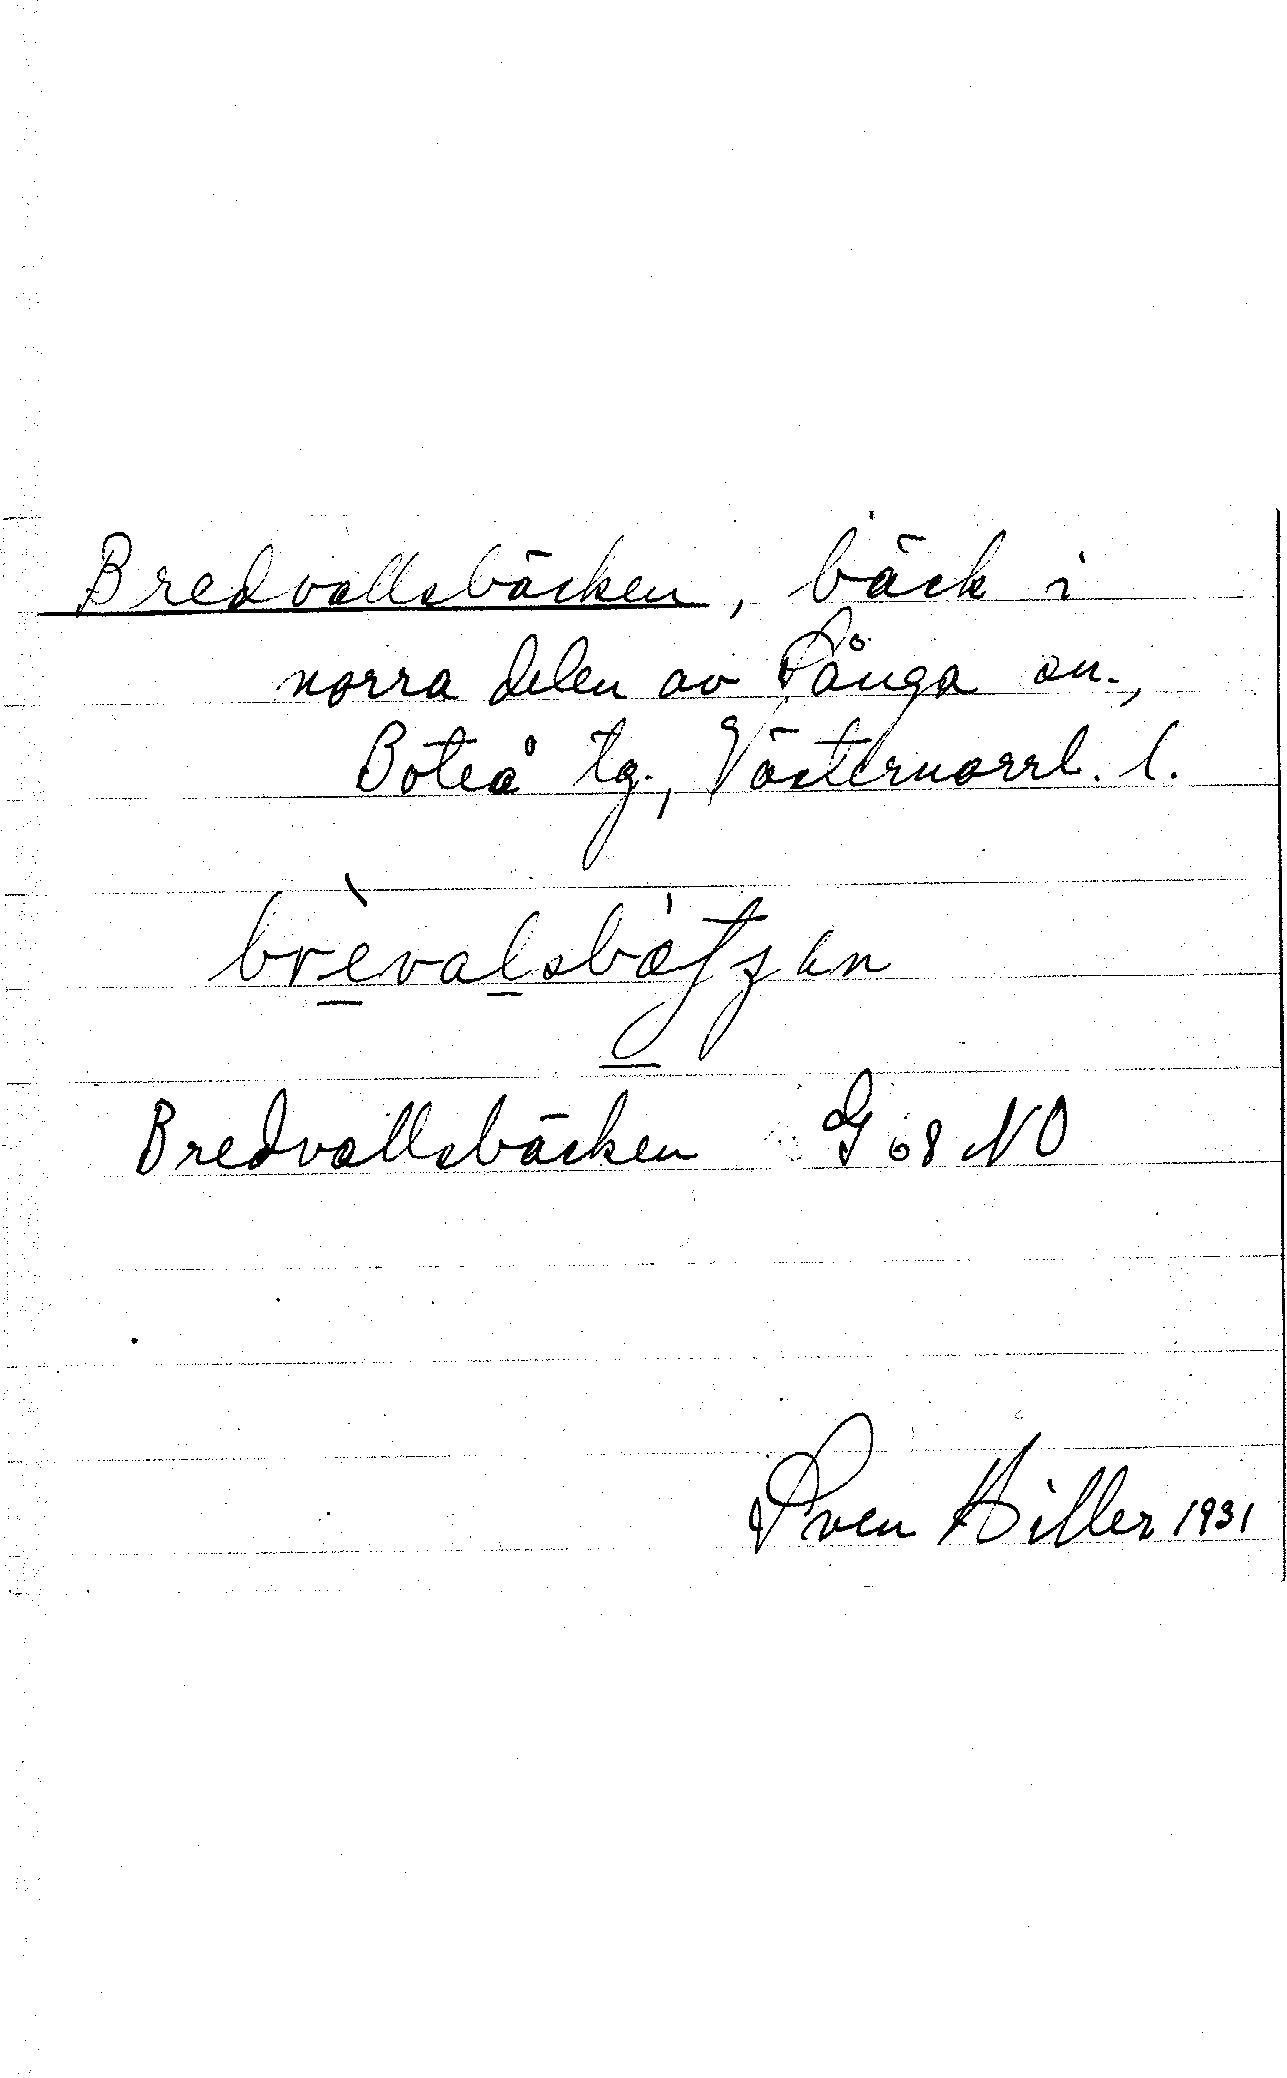 Bredvallsbäcken, bäck i
norra delen av Sånga sn.,
Boteå tg., Västernorrl. l.
brèvalsbȧtjen
Bredvallsbäcken G 68 NO
Sven Hiller 1931